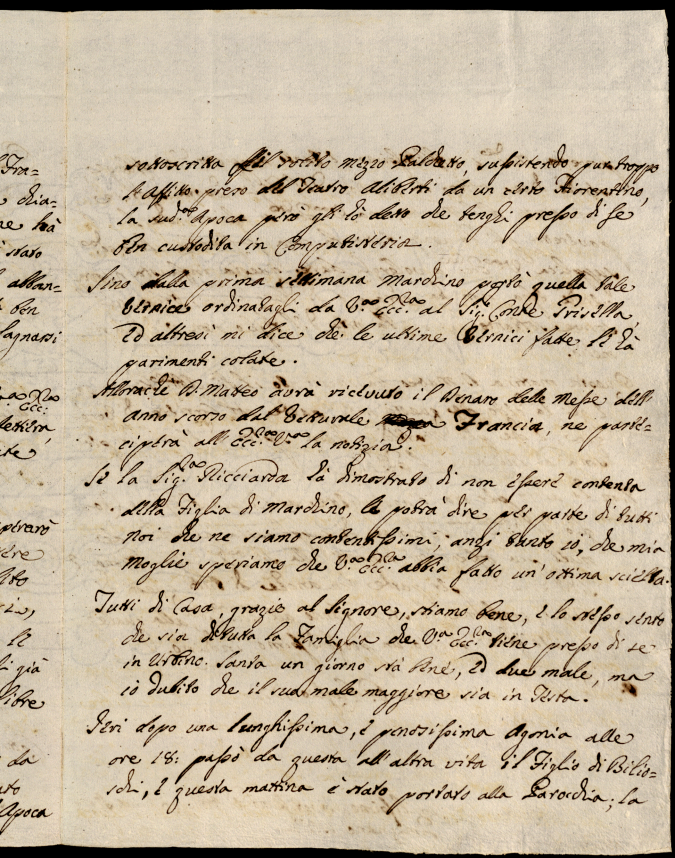 Fra=
chia=
ne hà
stato
abban=
ben
lagnarsi
lettera,
già
libre
da
Apoca
sottoscritta il solito mezzo Paldetto, sussistendo pur troppo
l'Affitto preso del Teatro Aliberti da un certo Fiorentino,
la sud.a Apoca però gli hò detto che tenghi presso di se
ben custodita in Computisteria.
Sino dalla prima settimana Marchino portò quella tale
Vernice ordinatagli da V.ra Ecc.za al Sig. Conte Prisella,
ed altresì mi dice che le ultime Vernici fatte le hà
parimenti colate.
Allorache D. Matteo avrà ricevuto il Denaro delle Messe dell'
anno scorso dal Vetturale Francia, ne parte=
ciperà all'Ecc.za V.ra la notizia.
Se la Sig.ra Ricciarda hà dimostrato di non essere contenta
della Figlia di Marchino, le potrà dire per parte di tutti
noi che ne siamo contentissimi, anzi tanto io, che mia
moglie speriamo che V.ra Ecc.za abbia fatto un'ottima scielta.
Tutti di Casa, grazie al Signore, stiamo bene, e lo stesso sento
che sia di tutta la Famiglia che V.ra Ecc.za tiene presso di se
in Urbino. Santa un giorno stà bene, ed due male, ma
io dubito che il suo male maggiore sia in Testa.
Ieri dopo una lunghissima, e penosissima Agonia alle
ore 18: passò da questa all'altra vita il Figlio di Bilio=
schi, e questa mattina è stato portato alla Parocchia; la